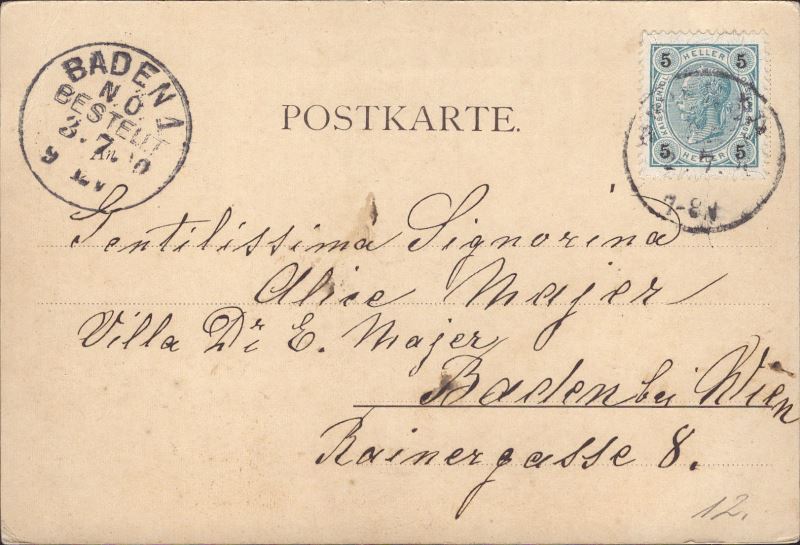 BADEN 1
N.Ö.
BESTELLT
3.7.
9
POSTKARTE.
5 HELLER 5
5 HELLER 5
Gentilissima Signorina
Alice Majer
Villa Dr E. Majer
Baden bei Wien
Rainergasse 8.
12.